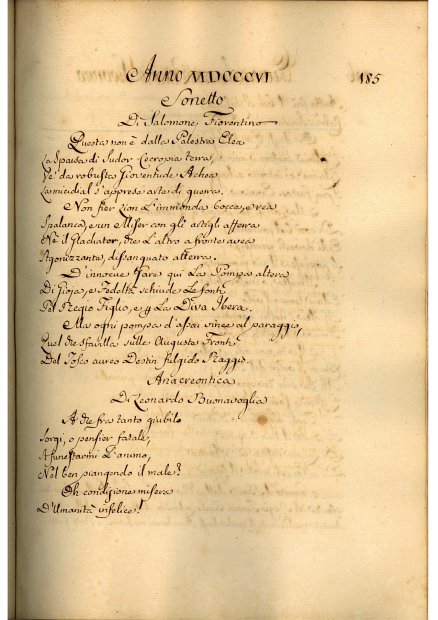 Anno MDCCCVI
185
Sonetto
Di Salomone Fiorentino
Questa non è dalla Palestra Elea
La sparsa di sudor Cecropia terra,
Ve' da robusta Gioventude Achea
L'amicidial s'apprese arte di guerra.
Non fier Lion L'immonda bocca, e rea
Spalanca, e un Miser con gli artigli afferra
Nè il Gladiator, che L'altro a fronte avea
Agonizzante, disanguato atterra.
D'innocue Gare qui La Pompa altera
Di Gioja, e Fedeltà schiude Le fonti
Pel Regio Figlio, e La Diva Ibera.
Ma ogni pompa d'assai vince al paraggio,
Quel che sfavilla sulle Auguste Fronti
Del Tosco aureo Destin fulgido Raggio.
Anacreontica
Di Leonardo Buonavoglia
A che fra tanto giubilo
Sorgi, o pensier fatale,
A funestarmi L'animo,
Nel ben piangendo il male?
Oh condizione misera
D'Umanità infelice!